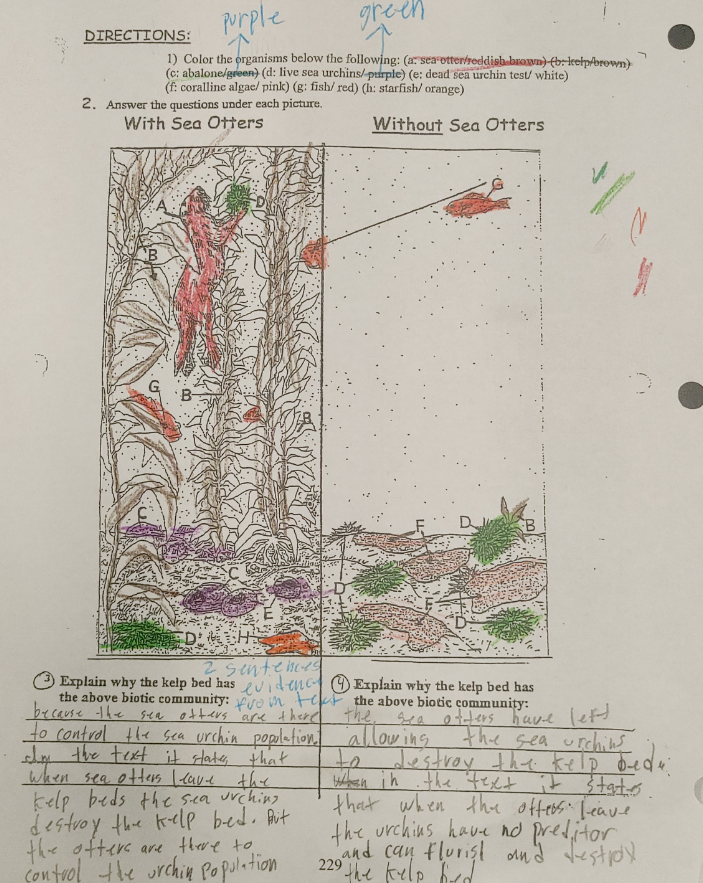 purple green
DIRECTIONS:
1) Color the organisms below the following: (a: sea otter/reddish brown) (b: kelp/brown)
(c: abalone/green) (d: live sea urchins/purple) (e: dead sea urchin test/ white)
(f: coralline algae/ pink) (g: fish/ red) (h: starfish/ orange)
2. Answer the questions under each picture.
With Sea Otters Without Sea Otters
A D G
B
G B B
C F D B
C
E D F
D H D
2 sentences
evidence
from text
3 Explain why the kelp bed has
the above biotic community:
because the sea otters are there
to control the sea urchin population.
In the text it states that
when sea otters leave the
kelp beds the sea urchins
destroy the kelp bed. But
the otters are there to
control the urchin population
4 Explain why the kelp bed has
the above biotic community:
the sea otters have left
allowing the sea urchins
to destroy the kelp bed.
When in the text it states
that when the otters leave
the urchins have no preditor
and can flurish and destroy
the kelp bed
229